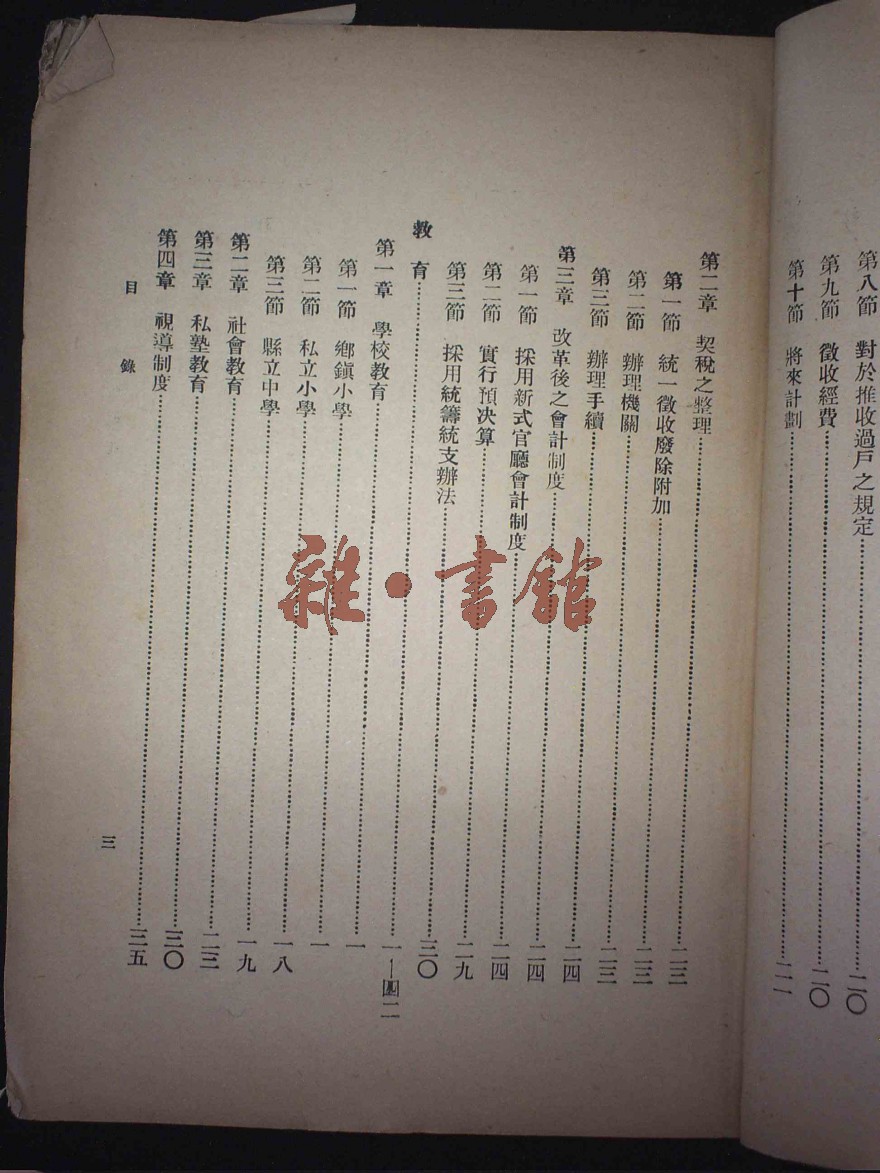 第八節　對於推收過戶之規定……二〇
第九節　徵收經費……二〇
第十節　將來計劃……
第二章　契稅之整理……二三
第一節　統一徵收廢除附加……二三
第二節　辦理機關……二三
第三節　辦理手續……二四
第三章　改革後之會計制度……二四
第一節　採用新式官廳會計制度……二四
第二節　實行預決算……二九
第三節　採用統籌統支辦法……三〇
教　育……一—四二
第一章　學校教育……一
第一節　鄉鎭小學……一
第二節　私立小學……一八
第三節　縣立中學……一九
第二章　社會教育……二三
第三章　私塾教育……三〇
第四章　視導制度……三五
目　錄
三
雜·書館